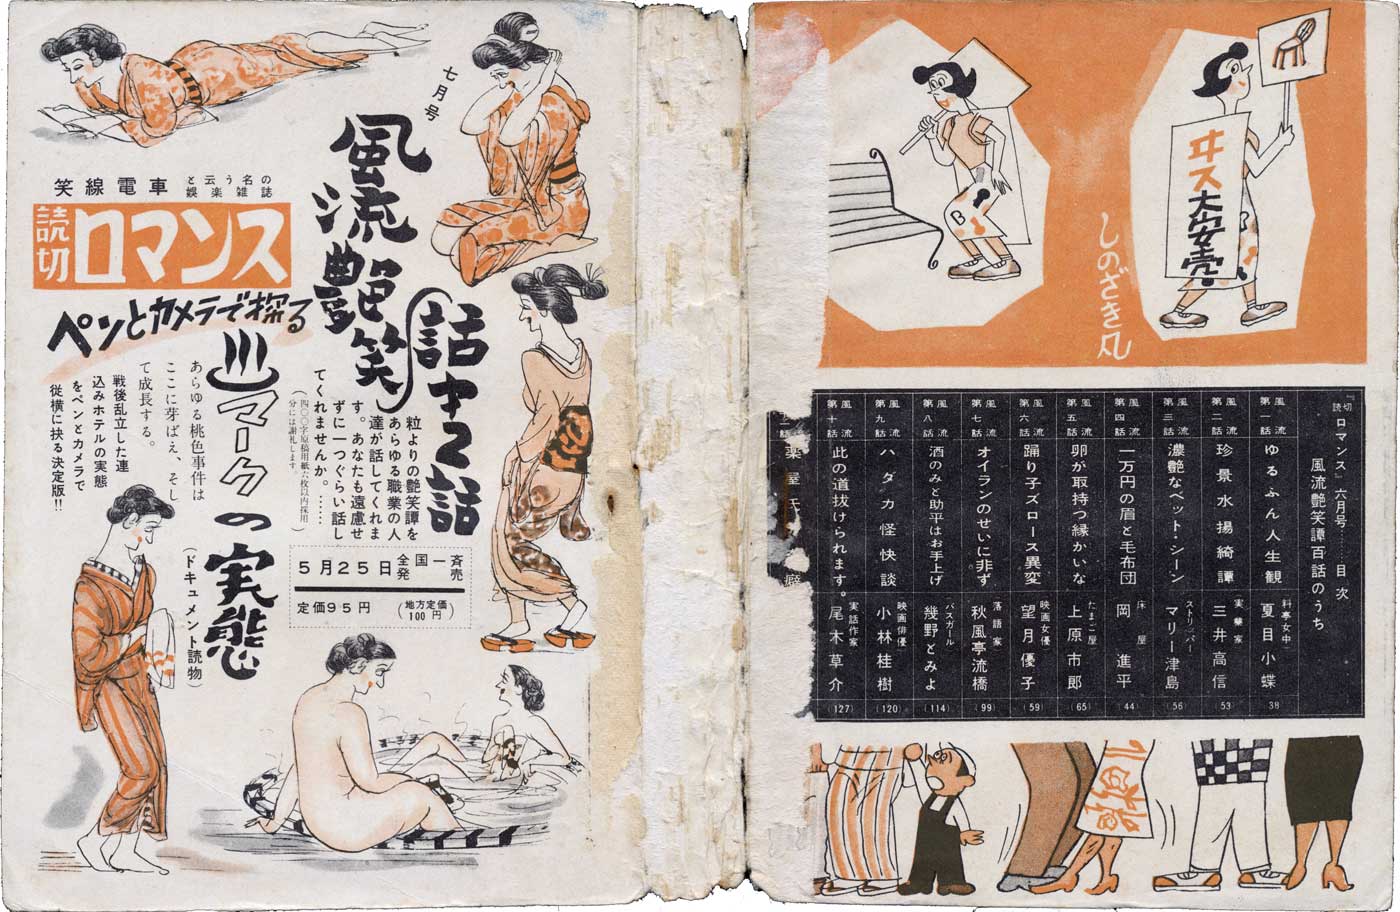 七月号
風流艶笑
話十二話
笑線電車
と云う名の
娯楽雑誌
読切
ロマンス
ペンとカメラで探る
♨マークの実態
(ドキュメント読物)
あらゆる桃色事件は
ここに芽ばえ、そし
て成長する。
戦後乱立した連
込みホテルの実態
をペンとカメラで
従横に抉る決定版!!
粒よりの艶笑譚を
あらゆる職業の人
達が話してくれま
す。あなたも遠慮せ
ずに一つぐらい話し
てくれませんか。……
(四〇〇字原稿用紙六枚以内採用
分には謝礼します。)
5月25日全国一斉発売
定価95円
(地方定価100円)
ヰス大安売
B
しのざき凡
『読切ロマンス』六月号……目次
風流艶笑譚百話のうち
風流第一話 ゆるふん人生観 料亭女中 夏目小蝶 38
風流第二話 珍景水揚綺譚 実業家 三井高信 53
風流第三話 濃艶なベット・シーン ストリッパー マリー津島 (56)
風流第四話 一万円の眉と毛布団 床屋 岡進平 (44)
風流第五話 卵が取持つ縁かいな たまご屋 上原市郎 (65)
風流第六話 踊り子ズロース異変 映画女優 望月優子 (59)
風流第七話 オイランのせいに非ず 落語家 秋風亭流橋 (99)
風流第八話 酒のみと助平はお手上げ バスガール 幾野とみよ (114)
風流第九話 ハダカ怪快談 映画俳優 小林桂樹 (120)
風流第十話 此の道抜けられます。 実話作家 尾木草介 (127)
薬屋氏
癖